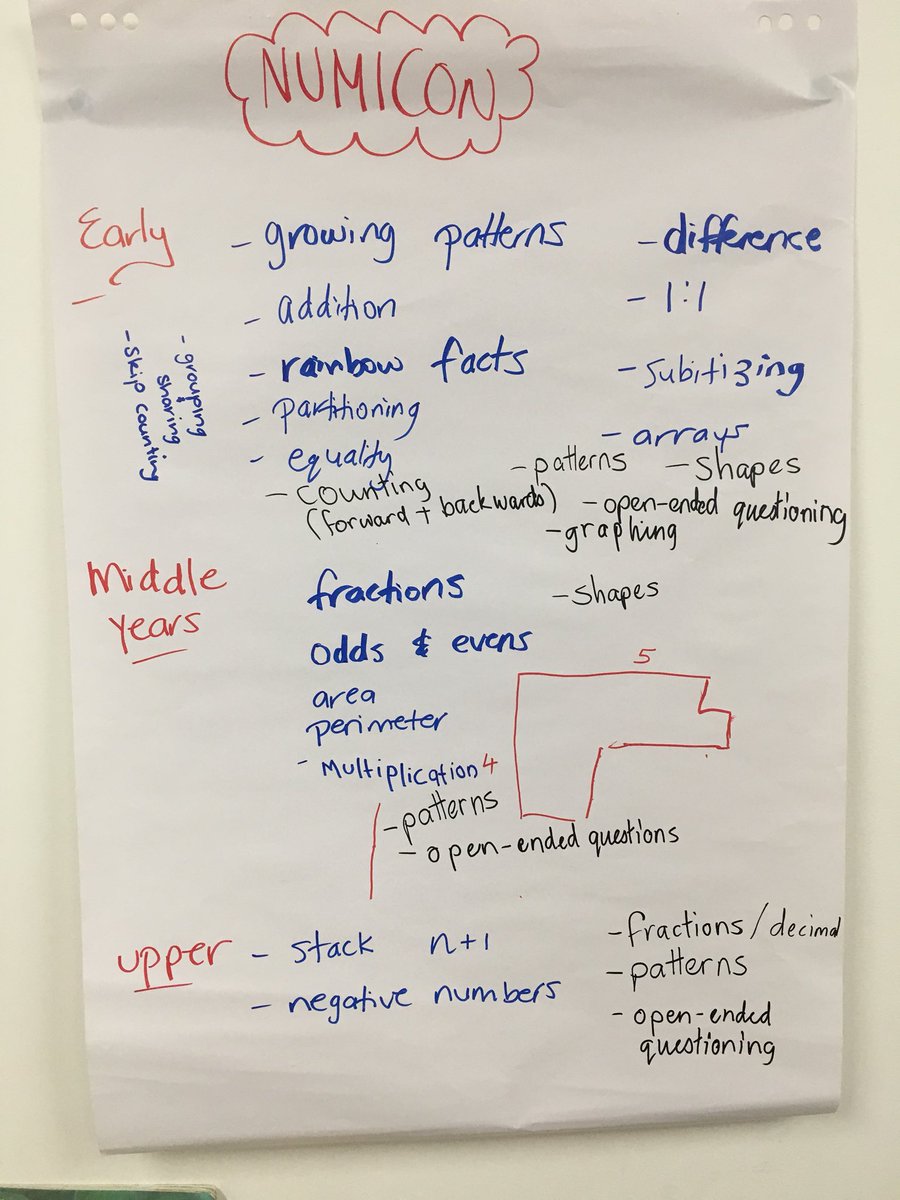 NUMICON
Early
- growing patterns
- difference
- addition
- 1:1
- rainbow facts
- subitizing
- partitioning
- arrays
- equality
- patterns
- shapes
- counting
(forward + backwards)
- open-ended questioning
- graphing
- grouping
sharing
- skip counting
Middle
years
fractions
- shapes
odds & evens
area
perimeter
- Multiplication
5
4
- patterns
- open-ended questions
upper
- stack n+1
- negative numbers
- fractions/decimal
- patterns
- open-ended
questioning